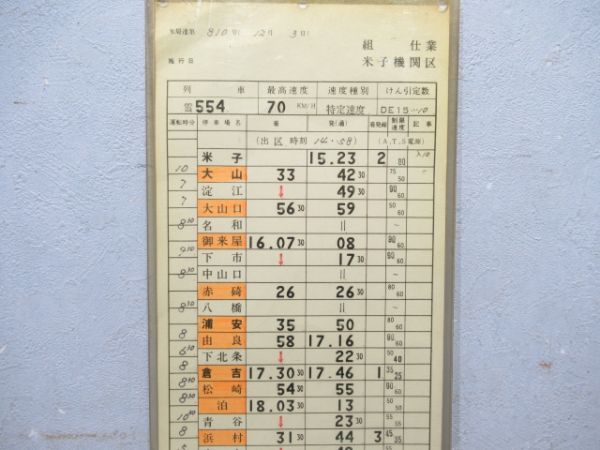 810 12月 3日
組 仕業
施行日 米子機関区
列 車 最高速度 速度種別 けん引定数
雪554 70 KM/H 特定速度 DE15-10
運転時分 停車場名 着 発(通) 着発線 制限速度 記事
(出区時刻 14.58) (A.T.S電源)
米子 15.23 2 80 入10
10 大山 33 42 30 75 50
7 淀江 ↓ 49 30 90 60
7 大山口 56 30 59 50 60
8 30 名和 || ~
御来屋 16.07 30 08 90 60
9 30 下市 ↓ 17 30 90 60
8 30 中山口 || ~
赤碕 26 26 30 80 60
8 30 八橋 || ~
浦安 35 50 80 60
8 由良 58 17.16 90 60
6 30 下北条 ↓ 22 30 50 40
8 30 倉吉 17.30 30 17.46 1 35 25
8 30 松崎 54 30 55 90 60
8 30 泊 18.03 30 13 50 50
10 30 青谷 ↓ 23 30 60
8 浜村 31 30 44 3 45 35